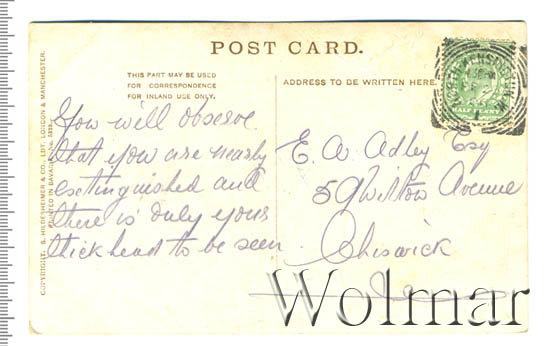 POST CARD.
THIS PART MAY BE USED
FOR CORRESPONDENCE
FOR INLAND USE ONLY.
ADDRESS TO BE WRITTEN HERE.
You will observe
that you are nearly
extinguished and
there is only your
thick head to be seen
E. A. Adley Esq
59 Wilton Avenue
Chiswick
COPYRIGHT. S. HILDESHEIMER & CO., LDT. LONDON & MANCHESTER.
PRINTED IN BAVARIA.
Wolmar